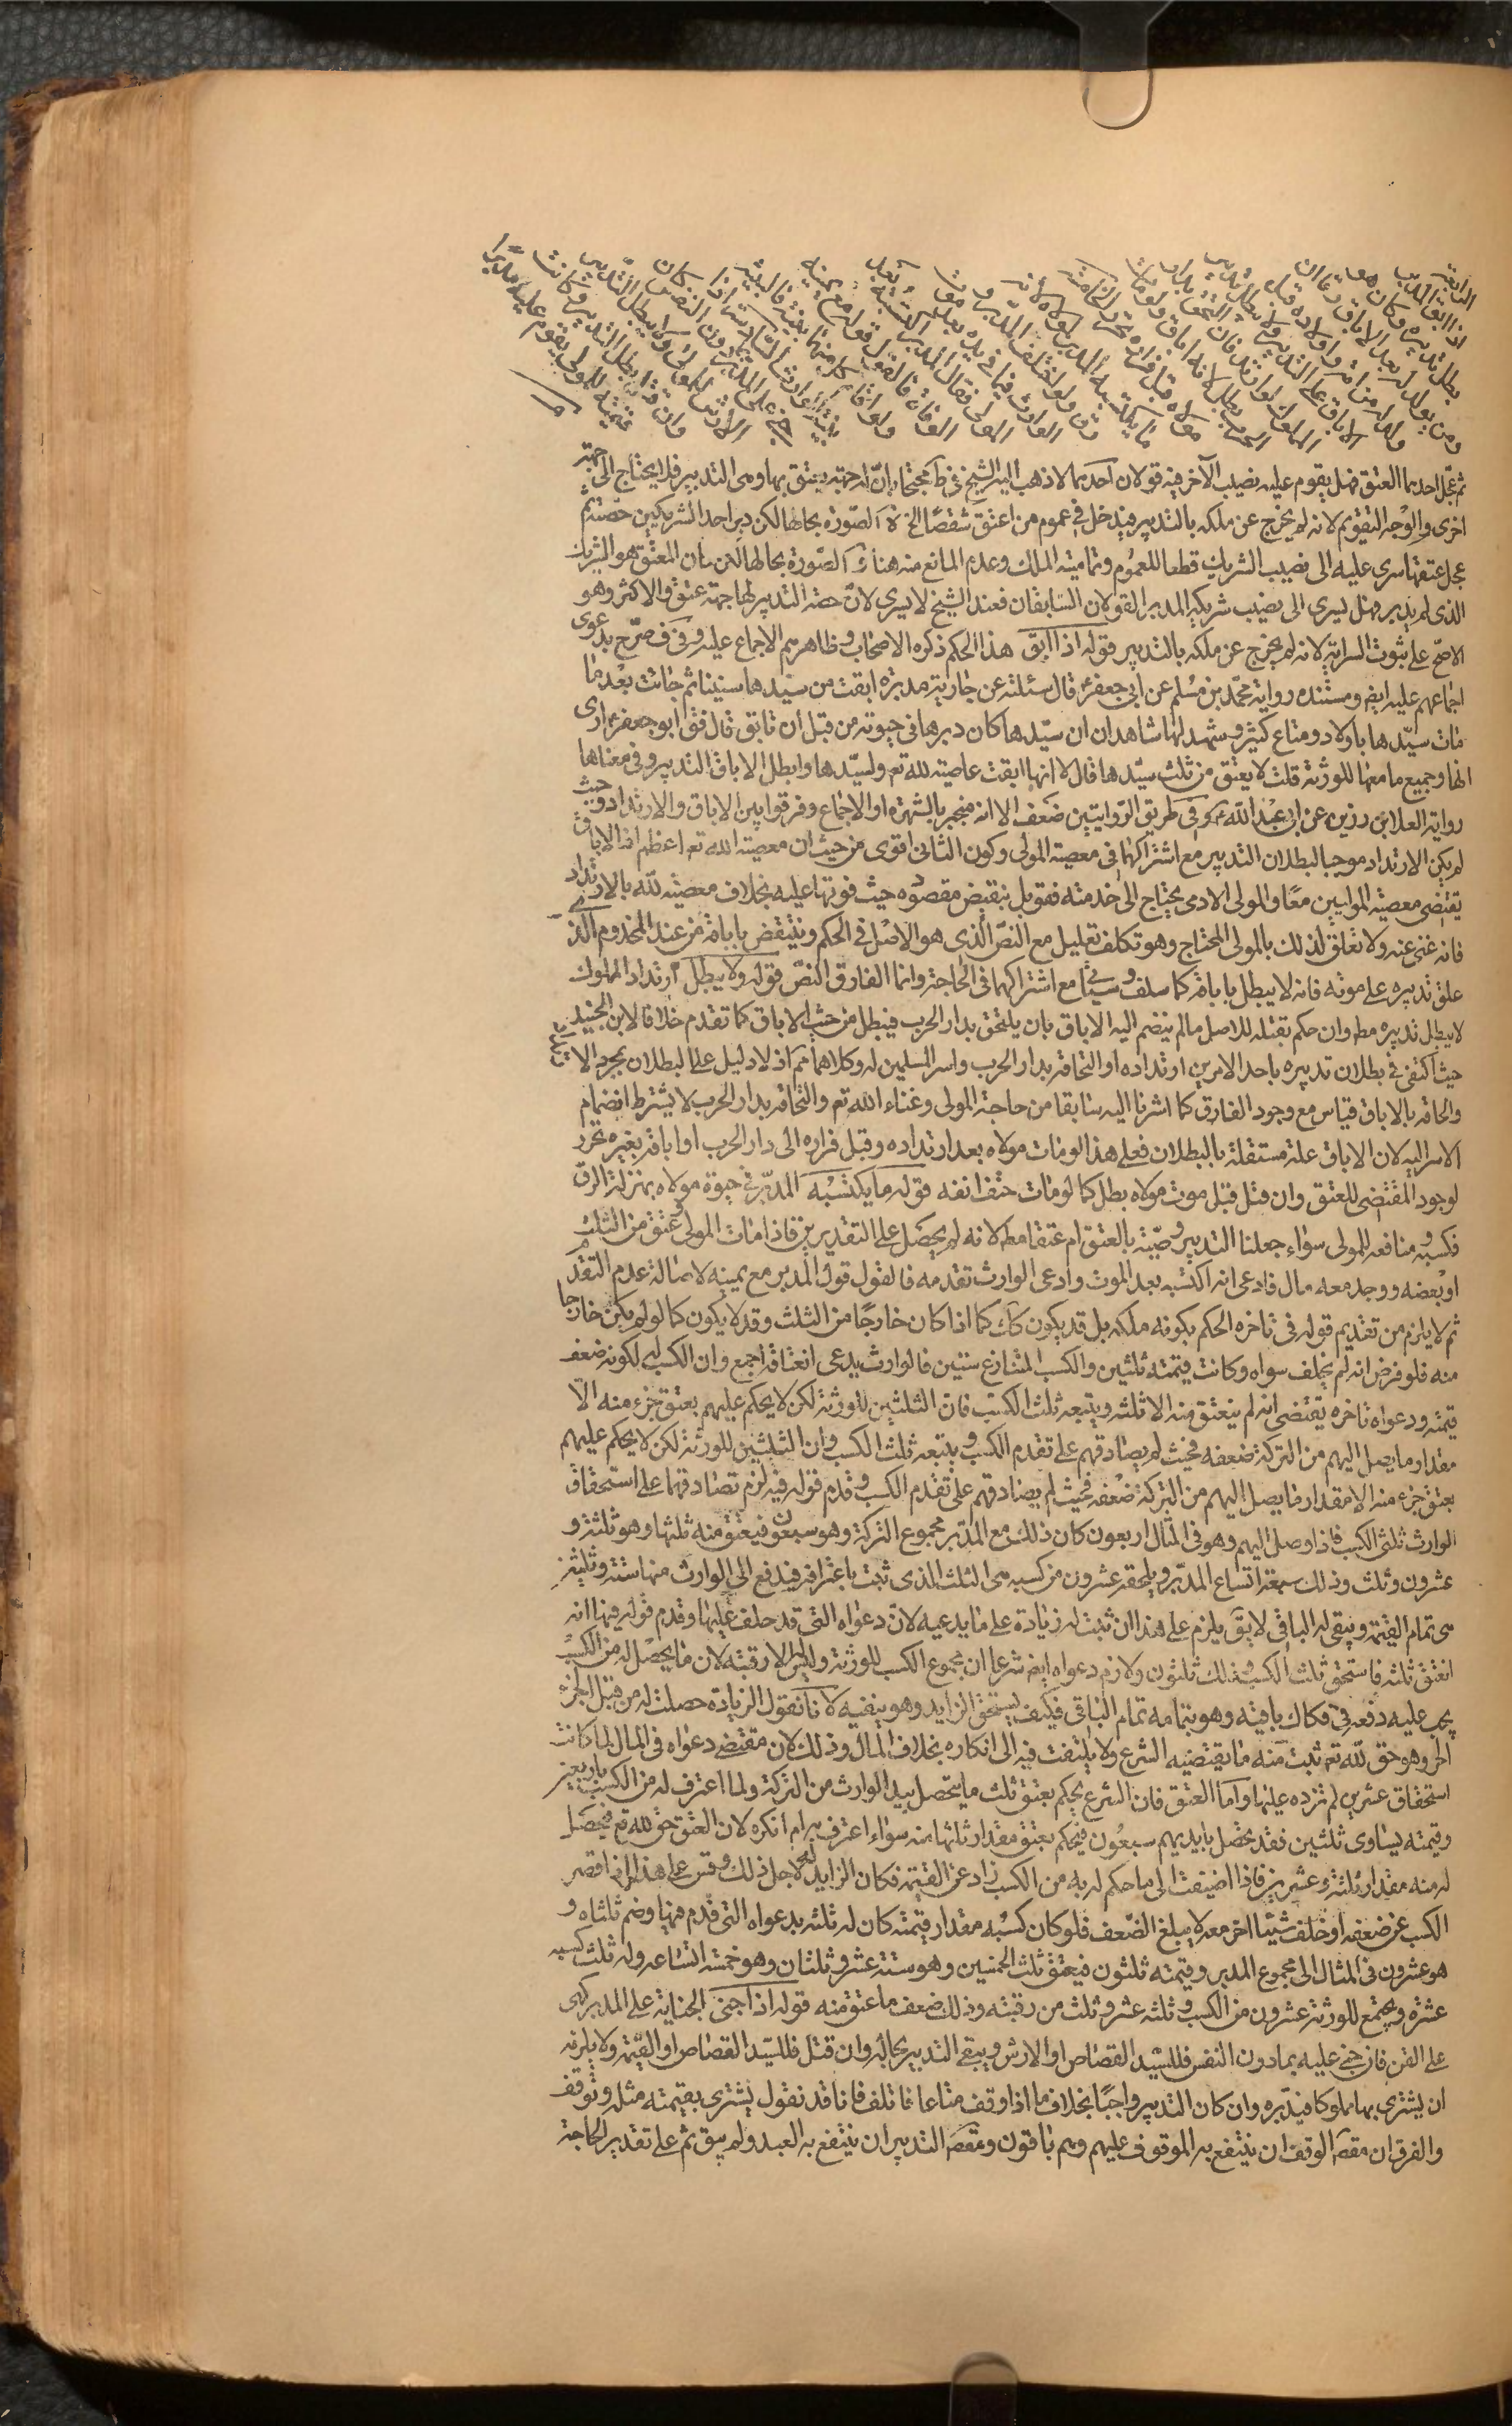 الرابعة
اذا ابق المدبر
بطل تدبيره وكان هو
ومن يولد له بعد الاباق رقا ان
ولد له من امة واولاده قبل
الاباق على التدبير ولا يبطل تدبير
المملوك لو ارتد فان التحق بدار
الحرب بطل لانه اباق ولو مات
مولاه قبل فراره تحرر الخامسة
ما يكتسبه المدبر لمولاه لانه
رق ولو اختلف المدبر و
الوارث فيما في يده بعد موت
المولى فقال المدبر اكتسبته بعد
الوفاة فالقول قوله مع يمينه
ولو اقام كل منهما بينة فالبينة
بينة الوارث السادسة اذا
جنى على المدبر دون النفس كان
الارش للمولى ولا يبطل التدبير
وان قتل بطل التدبير وكانت
قيمته للمولى يقوم عليه مدبرا
ثم عجل احدهما العتق فهل يقوم عليه نصيب الآخر فيه قولان احدهما لا ذهب اليه الشيخ في ط محتجا بان له جهة يعتق بها وهي التدبير فلا يحتاج الى جهة
اخرى والوجه التقويم لانه لم يخرج عن ملكه بالتدبير فيدخل في عموم من اعتق شقصا الخ الصورة بحالها لكن دبر احد الشريكين حصته ثم
عجل عتقها سرى عليه الى نصيب الشريك قطعا للعموم وتمامية الملك وعدم المانع منه هنا الصورة بحالها لكن كان المعتق هو الشريك
الذى لم يدبر فهل يسرى الى نصيب شريكه المدبر القولان السابقان فعند الشيخ لا يسرى لان حصة التدبير لها جهة عتق والاكثر وهو
الاصح على ثبوت السراية لانه لم يخرج عن ملكه بالتدبير قوله اذا ابق هذا الحكم ذكره الاصحاب وظاهرهم الاجماع عليه وفي ف صرح بدعوى
اجماعهم عليه ايض ومستنده رواية محمد بن مسلم عن ابي جعفر ع قال سئلته عن جارية مدبرة ابقت من سيدها سنينا ثم جائت بعد ما
مات سيدها باولاد ومتاع كثير وشهد لها شاهدان ان سيدها كان دبرها في حيوته من قبل ان تابق قال فق ابو جعفر ع ارى
انها وجميع ما معها للورثة قلت لا يعتق من ثلث سيدها قال لا انها ابقت عاصية لله تع ولسيدها وابطل الاباق التدبير وفي معناها
رواية العلا بن رزين عن ابي عبد الله ع وفي طريق الروايتين ضعف الا انه منجبر بالشهرة او الاجماع وفرقوا بين الاباق والارتداد حيث
لم يكن الارتداد موجبا لبطلان التدبير مع اشتراكهما في معصية المولى وكون الثاني اقوى من حيث ان معصية الله تع اعظم ان الاباق
يقتضى معصية الموليين معا والمولى الادمى يحتاج الى خدمته فقوبل بنقيض مقصوده حيث فوتها عليه بخلاف معصية لله بالارتداد
فانه غنى عنه ولا تعلق لذلك بالمولى المحتاج وهو تكلف تعليل مع النص الذى هو الاصل في الحكم وينتقض باباقه من عند المخدوم الذى
علق تدبيره على موته فانه لا يبطل باباقه كما سلف وسياتي مع اشتراكهما في الحاجة وانما الفارق النص قوله ولا يبطل ارتداد المملوك
لا يبطل تدبيره مط وان حكم بقتله للاصل ما لم ينضم اليه الاباق بان يلتحق بدار الحرب فيبطل من حيث الاباق كما تقدم خلافا لابن الجنيد
حيث اكتفى في بطلان تدبيره باحد الامرين ارتداده او التحاقه بدار الحرب واسر المسلمين له وكلاهما مم اذ لا دليل على البطلان بمجرد الارتداد
والحاقه بالاباق قياس مع وجود الفارق كما اشرنا اليه سابقا من حاجة المولى وغناء الله تع والتحاقه بدار الحرب لا يشترط انضمام
الاسر اليه لان الاباق علة مستقلة بالبطلان فعلى هذا لو مات مولاه بعد ارتداده وقبل فراره الى دار الحرب او اباقه بغيره تحرر
لوجود المقتضى للعتق وان قتل قبل موت مولاه بطل كما لو مات حتف انفه قوله ما يكتسبه المدبر في حيوة مولاه بمنزلة الرق
فكسبه ومنافعه للمولى سواء جعلنا التدبير وصية بالعتق ام عتقا مط لانه لم يحصل على التقديرين فاذا مات المولى وعتق من الثلث
او بعضه ووجد معه مال فادعى انه اكتسبه بعد الموت وادعى الوارث تقدمه فالقول قول المدبر مع يمينه لاصالة عدم التقدم
ثم لا يلزم من تقديم قوله في تاخره الحكم بكونه ملكه بل قد يكون كك كما اذا كان خارجا من الثلث وقد لا يكون كما لو لم يكن خارجا
منه فلو فرض انه لم يخلف سواه وكانت قيمته ثلثين والكسب المتنازع ستين فالوارث يدعى انعتاقه اجمع وان الكسب له لكونه ضعف
قيمته ودعواه تاخره يقتضى انه لم ينعتق منه الا ثلثه ويتبعه ثلث الكسب فان الثلثين للورثة لكن لا يحكم عليهم بعتق جزء منه الا
مقدار ما يصل اليهم من التركة ضعفه فحيث لم يصادقهم على تقدم الكسب ويتبعه ثلث الكسب وان الثلثين للورثة لكن لا يحكم عليهم
بعتق جزء منه الا مقدار ما يصل اليهم من التركة ضعفه فحيث لم يصادقهم على تقدم الكسب وقدم قوله فيه لزم تصادقهما على استحقاق
الوارث ثلثى الكسب فاذا وصل اليهم وهو في المثال اربعون كان ذلك مع المدبر مجموع التركة وهو سبعون فيعتق منه ثلثها وهو ثلثة و
عشرون وثلث وذلك سبعة اتساع المدبر ويلحقه عشرون من كسبه هي الثلث الذى ثبت باعترافه فيدفع الى الوارث منها ستة وثلثين
هي تمام القيمة ويبقى له الباقي لا يق يلزم على هذا ان تثبت له زيادة على ما يدعيه لان دعواه التى قد حلف عليها وقدم قوله فيها انه
انعتق ثلثه فاستحق ثلث الكسب وذلك ثلثون ولازم دعواه ايض شرعا ان مجموع الكسب للورثة وليس له الا رقبته لان ما يحصل له من الكسب
يجب عليه دفعه في فكاك باقيه وهو بتمامه تمام الباقي فكيف يستحق الزايد وهو ينفيه لانا نقول الزيادة حصلت له من قبل الجزء
الحر وهو حق لله تع ثبت منه ما يقتضيه الشرع ولا يلتفت فيه الى انكاره بخلاف المال وذلك لان مقتضى دعواه في المال لما كانت
استحقاق عشرين لم نزده عليها واما العتق فان الشرع يحكم بعتق ثلث ما يتحصل بيد الوارث من التركة ولما اعترف له من الكسب باربعين
وقيمته يساوى ثلثين فقد يحصل بايديهم سبعون فيحكم بعتق مقدار ثلثها منه سواء اعترف به ام انكره لان العتق حق لله تع فيحصل
له منه مقدار ثلثة وعشرين فاذا اضيفت الى ما حكم له به من الكسب زاد عن القيمة فكان الزايد له لاجل ذلك وقس على هذا لو قصر
الكسب عن ضعفه او خلف شيئا اخر معه لا يبلغ الضعف فلو كان كسبه مقدار قيمته كان له ثلثه بدعواه التى قدم فيها وضم ثلثاه و
هو عشرون في المثال الى مجموع المدبر وقيمته ثلثون فيعتق ثلث الخمسين وهو ستة عشر وثلثان وهو خمسة اتساعه وله ثلث كسبه
عشرة ويجتمع للورثة عشرون من الكسب وثلثة عشر وثلث من رقبته وذلك ضعف ما عتق منه قوله اذا جنى الجناية على المدبر كهى
على القن فان جنى عليه بما دون النفس فللسيد القصاص او الارش ويبقى التدبير بحاله وان قتل فللسيد القصاص او القيمة ولا يلزمه
ان يشترى بها مملوكا فيدبره وان كان التدبير واجبا بخلاف ما اذا وقف متاعا فاتلف فانا قد نقول يشترى بقيمته مثله وتوقف
والفرق ان مقص الوقف ان ينتفع به الموقوف عليهم وهم باقون ومقص التدبير ان ينتفع به العبد ولم يبق ثم على تقدير الحاجة